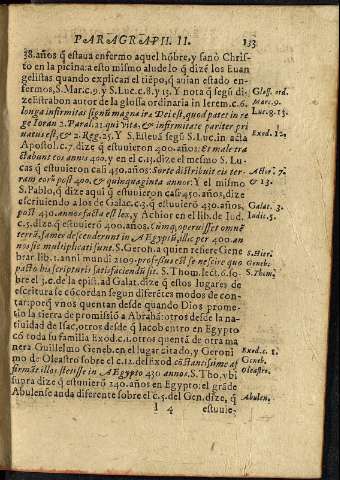 PARAGRAPH. II. 133
38. años q̃ estaua enfermo aquel hõbre, y sanò Chris-
to en la picina: a esto mismo alude lo q̃ dizẽ los Euan
gelistas quando explican el tiẽpo, q̃ auian estado en-
fermos, S. Marc. 9. y S. Luc. c. 8. y 13. Y nota q̃ segũ di-
ze Strabon autor de la glossa ordinaria in Ierem. c. 6.
longa infirmitas signũ magna ira Dei est, quod patet in re
ge Ioran 2. Paral. 21. qui vita, & infirmitate pariter pri
uatus est, & 2. Reg. 25. Y S. Esteuã segũ S. Luc. in acta
Apostol. c. 7. dize q̃ estuuieron 400. años: Et male tra
ctabunt eos annos 400. y en el c. 13. dize el mesmo S. Lu
cas q̃ estuuieron casi 450. años: Sorte distribuit eis ter-
ram eorũ post 400. & quinquaginta annos: Y el mismo
S. Pablo, q̃ dize aqui q̃ estuuieron casi 450. años, dize
escriuiendo a los de Galat. c. 3. q̃ estuuierõ 430. años,
post 430. annos facta est lex, y Achior en el lib. de Iud.
c. 5. dize q̃ estuuierõ 400. años. Cùmq; operuisset omnẽ
terrã, fames descenderunt in AEgyptũ, illic per 400. an
nos sic multiplicati sunt. S. Geron. a quien refiere Gene
brar lib. 1. anni mundi 2109. professus est se nescire quo
pacto his scripturis satisfaciendũ sit. S. Thom. lect. 6. so-
bre el 3. c. de la epist. ad Galat. dize q̃ estos lugares de
escritura se cõcordan segun diferẽtes modos de con-
tar: porq̃ vnos quentan desde quando Dios prome-
tio la tierra de promissiõ a Abrahã: otros desde la na-
tiuidad de Isac, otros desde q̃ Iacob entro en Egypto
cõ toda su familia Exod. c. 1. otros quentã de otra ma
nera Guillelmo Geneb. en el lugar citado, y Geroni
mo de Oleastro sobre el c. 12. del Exod. cõstantissime af
firmãt illos stetisse in AEgypto 430. annos. S. Tho. vbi
supra dize q̃ estuuierõ 240. años en Egypto: el grãde
Abulense anda diferente sobre el c. 5. del Gen. dize, q̃
I 4 estuuie-
Glos. ord.
Marc. 9.
Luc. 8. 13.
Exod. 12.
Actor. 7.
& 13.
Galat. 3.
Iudic. 5.
S. Hier.
Geneb.
S. Thom.
Exod. c. 1.
Geneb.
Oleastro.
Abulen.